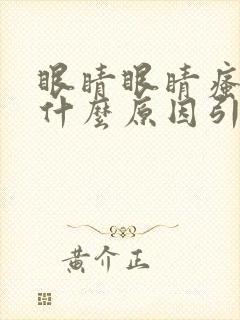 眼睛眼睛瘙
什麼原因引
黄介正